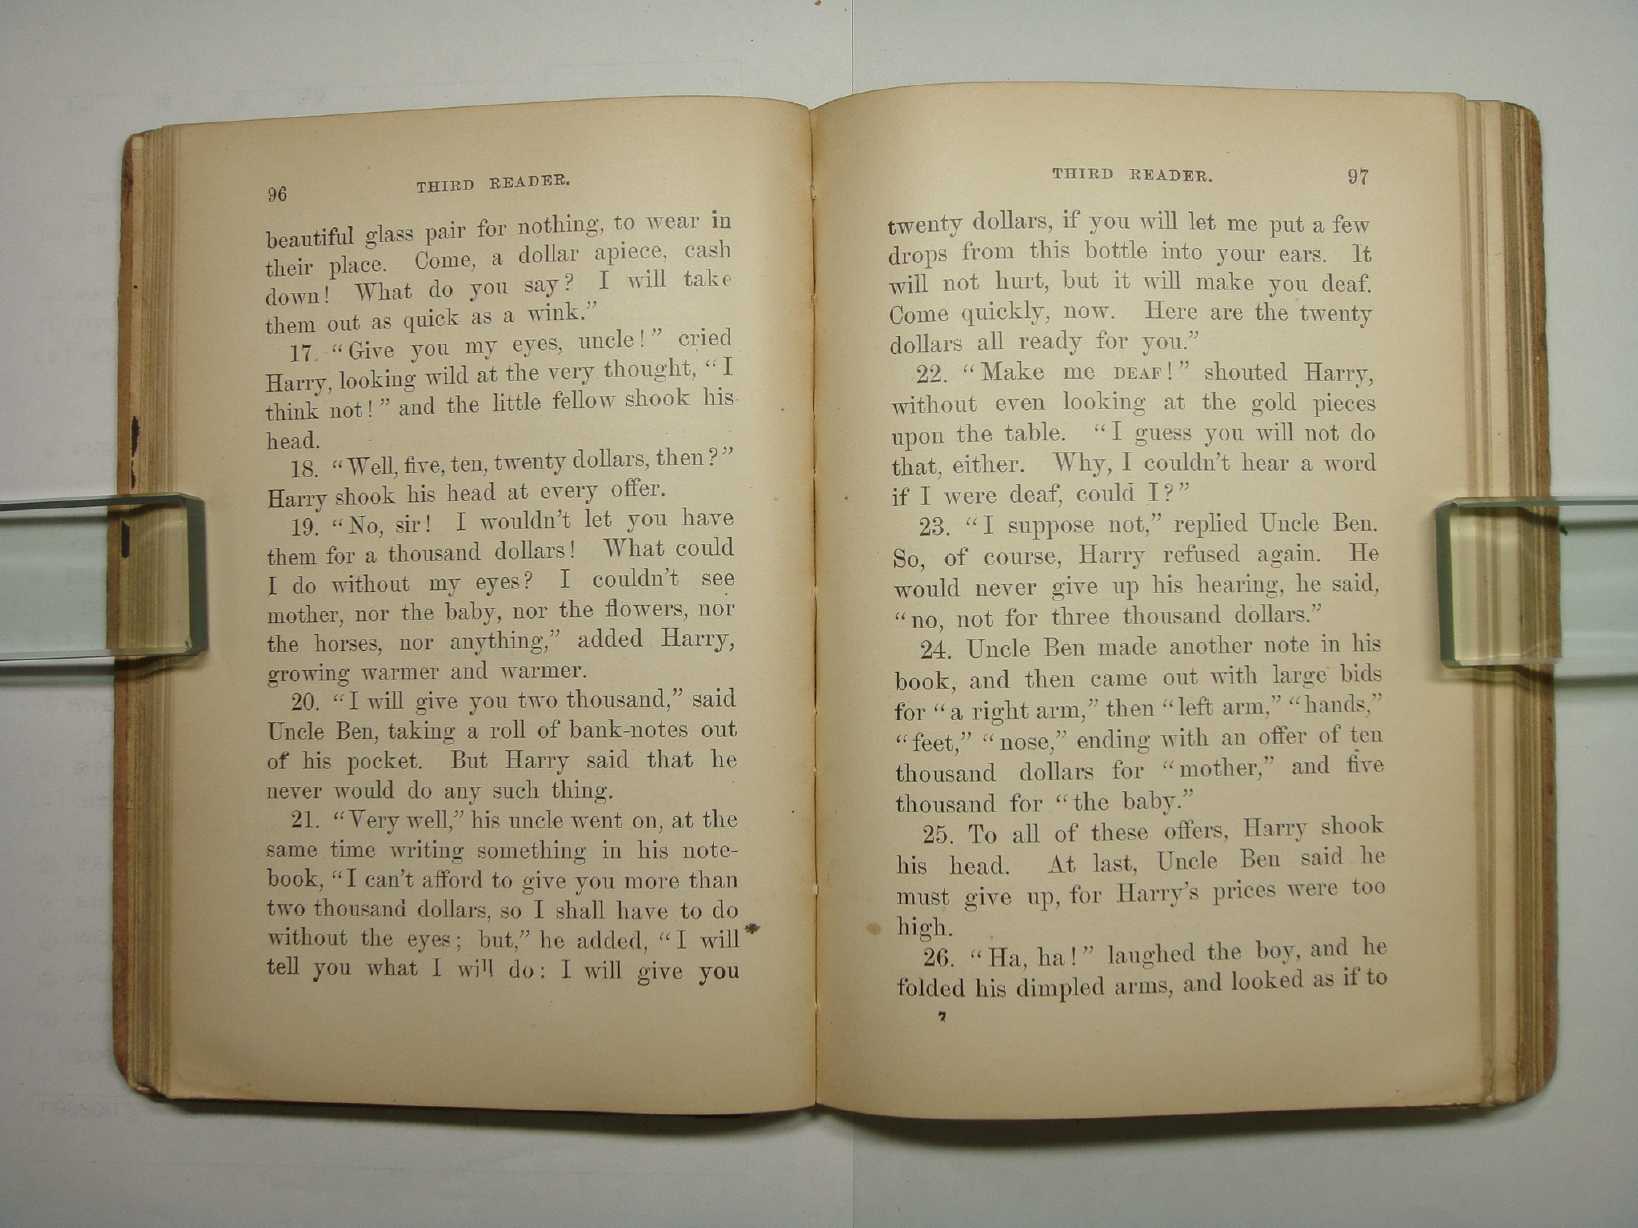 96
THIRD READER.
beautiful glass pair for nothing, to wear in
their place. Come, a dollar apiece, cash
down! What do you say? I will take
them out as quick as a wink.”
17. “Give you my eyes, uncle!” cried
Harry, looking wild at the very thought, “I
think not!” and the little fellow shook his
head.
18. “Well, five, ten, twenty dollars, then?”
Harry shook his head at every offer.
19. “No, sir! I wouldn’t let you have
them for a thousand dollars! What could
I do without my eyes? I couldn’t see
mother, nor the baby, nor the flowers, nor
the horses, nor anything,” added Harry,
growing warmer and warmer.
20. “I will give you two thousand,” said
Uncle Ben, taking a roll of bank-notes out
of his pocket. But Harry said that he
never would do any such thing.
21. “Very well,” his uncle went on, at the
same time writing something in his note-
book, “I can’t afford to give you more than
two thousand dollars, so I shall have to do
without the eyes; but,” he added, “I will
tell you what I will do: I will give you
THIRD READER.
97
twenty dollars, if you will let me put a few
drops from this bottle into your ears. It
will not hurt, but it will make you deaf.
Come quickly, now. Here are the twenty
dollars all ready for you.”
22. “Make me DEAF!” shouted Harry,
without even looking at the gold pieces
upon the table. “I guess you will not do
that, either. Why, I couldn’t hear a word
if I were deaf, could I?”
23. “I suppose not,” replied Uncle Ben.
So, of course, Harry refused again. He
would never give up his hearing, he said,
“no, not for three thousand dollars.”
24. Uncle Ben made another note in his
book, and then came out with large bids
for “a right arm,” then “left arm,” “hands,”
“feet,” “nose,” ending with an offer of ten
thousand dollars for “mother,” and five
thousand for “the baby.”
25. To all of these offers, Harry shook
his head. At last, Uncle Ben said he
must give up, for Harry’s prices were too
high.
26. “Ha, ha!” laughed the boy, and he
folded his dimpled arms, and looked as if to
7